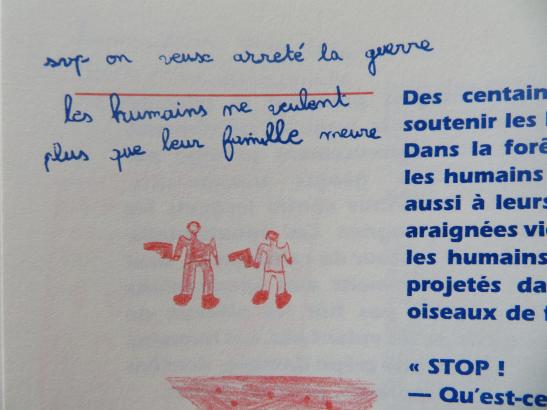 svp on veusc arreté la guerre
les humains ne veulent
plus que leur famille meure
Des centain
soutenir les
Dans la forê
les humains
aussi à leurs
araignées vi
les humains
projetés da
oiseaux de
« STOP !
— Qu'est-ce